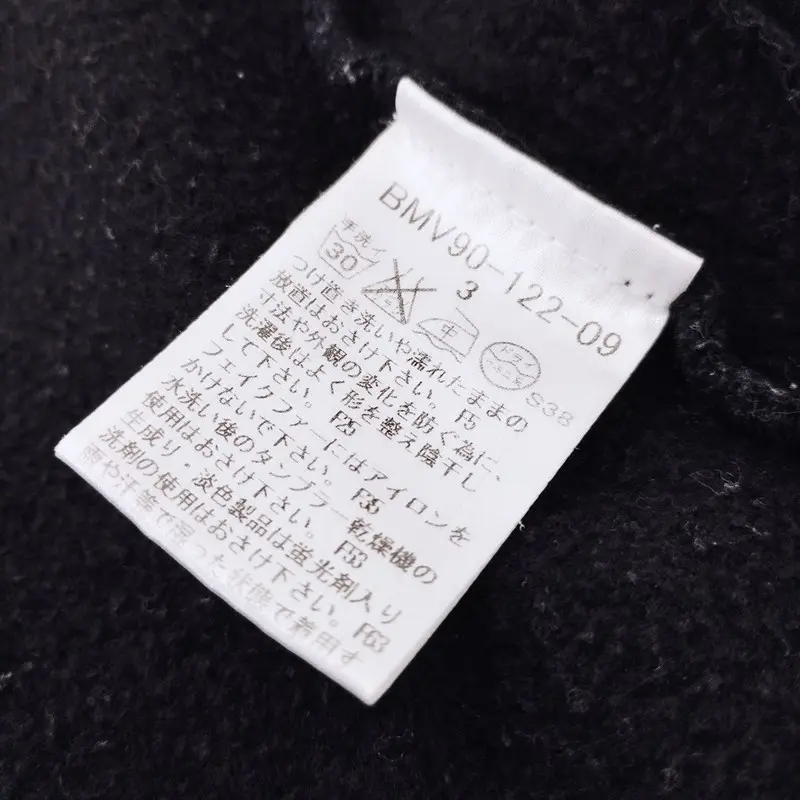 BMV90-122-09
3
手洗イ
30
中
ドライ
S38
つけ置き洗いや濡れたままの
放置はおさけ下さい。 F5
寸法や外観の変化を防ぐ為に、
洗濯後はよく形を整え陰干し
して下さい。 F25
フェイクファーにはアイロンを
かけないで下さい。 F35
水洗い後のタンブラー乾燥機の
使用はおさけ下さい。 F53
生成り・淡色製品は蛍光剤入り
洗剤の使用はおさけ下さい。 F63
雨や汗等で湿った状態で着用す